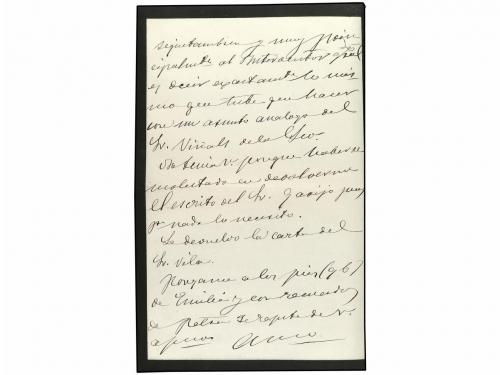 y muy prin
cipalmte. al Interventor gral
es decir exactamte. lo mis
mo que tube que hacer
con un asunto analogo del
Sr. Viñals de la
No tenia V. porque haberse
molestado en devolverme
el escrito del Sr. pues
pa. nada lo necesito.
Le devuelvo la carta del
Sr. Vila.
Pongame a los pies (q b)
de Emilia y con recuerdos
de se repite de V.